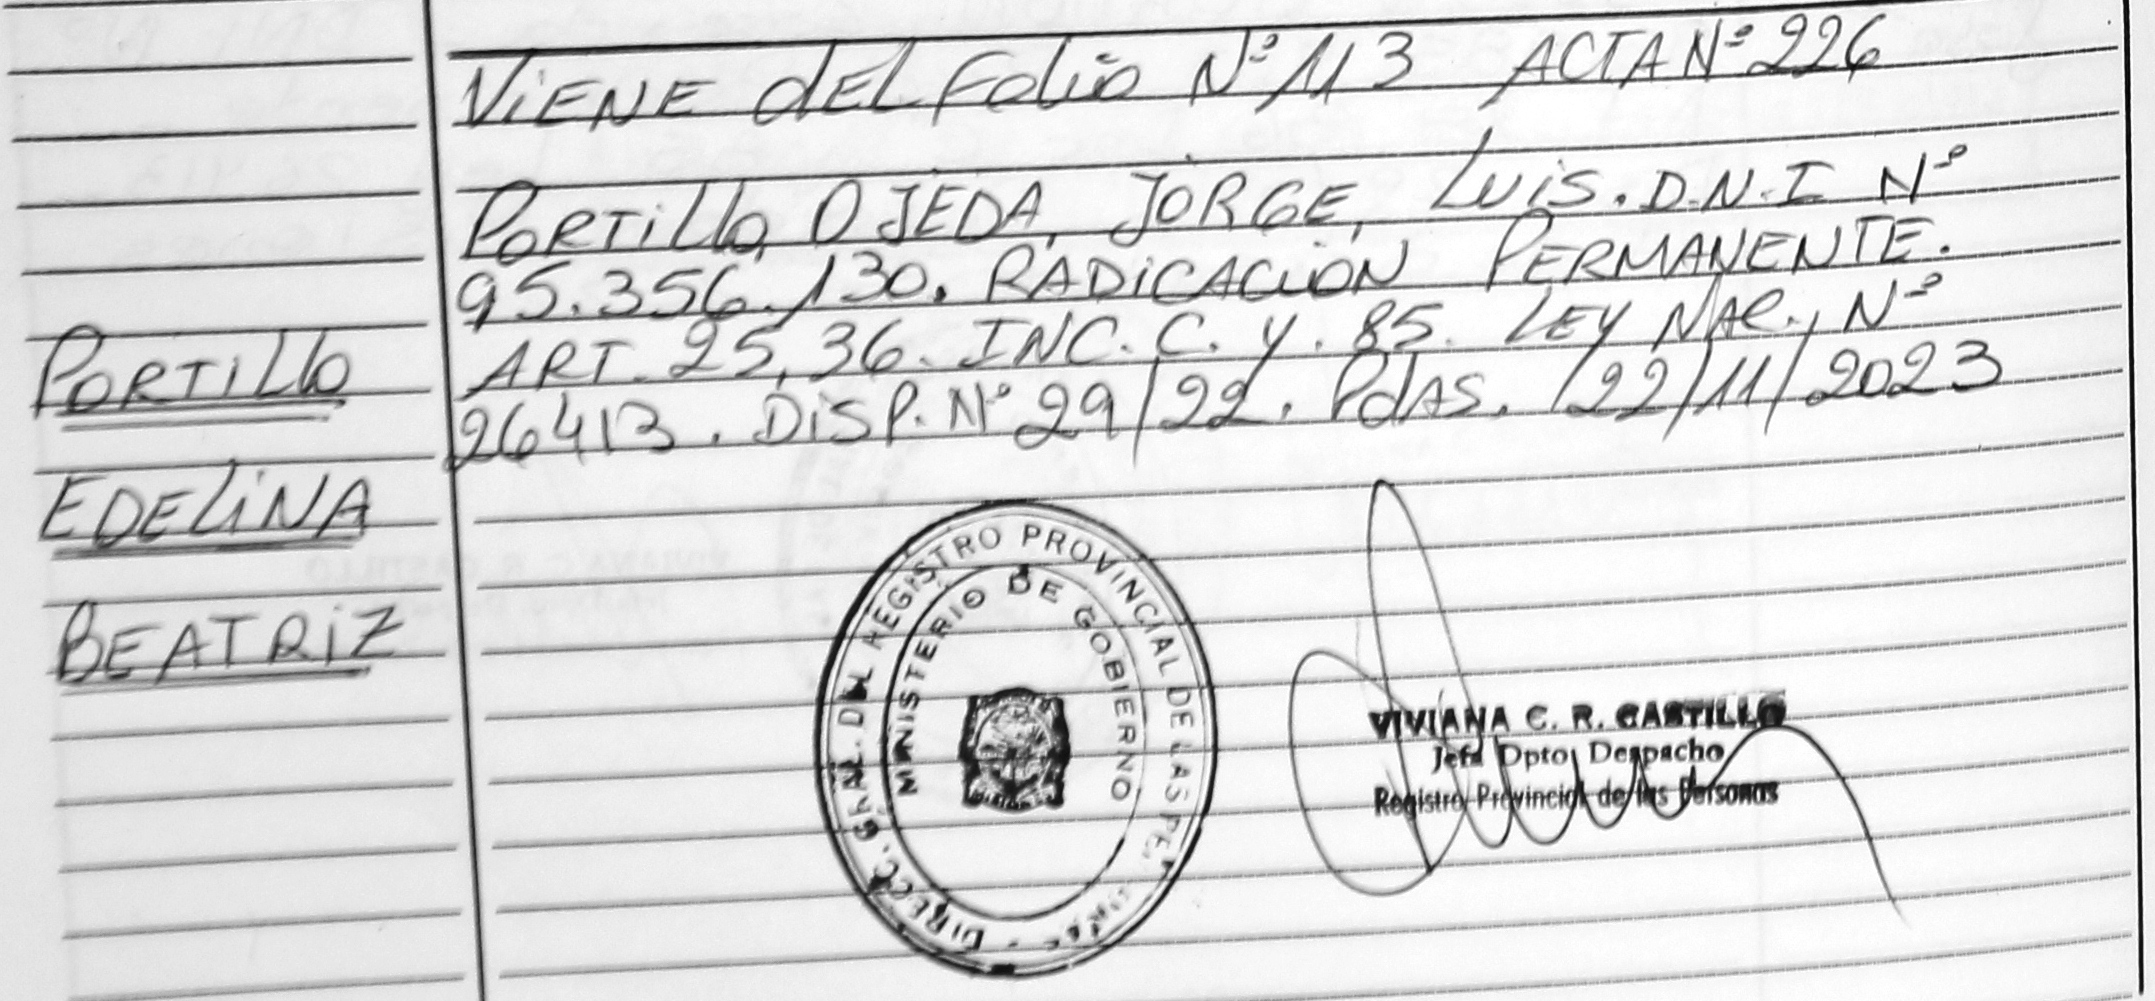 ViENE dEL Folio Nº 113 ACTA Nº 226
PORTillo, OJEDA, JORGE, Luis. D.N.I Nº
95.356.130. RADiCACiÓN PERMANENTE.
ART. 25, 36. INC. C. Y. 85. LEY NAC., Nº
26413. DiSP. Nº 29/22. PdAS. 22/11/2023
PORTillo
EDELiNA
BEATRiZ
DIRECC. GRAL. DEL REGISTRO PROVINCIAL DE LAS PERSONAS
MINISTERIO DE GOBIERNO
VIVIANA C. R. CASTILLO
Jefa Dpto. Despacho
Registro Provincial de las Personas